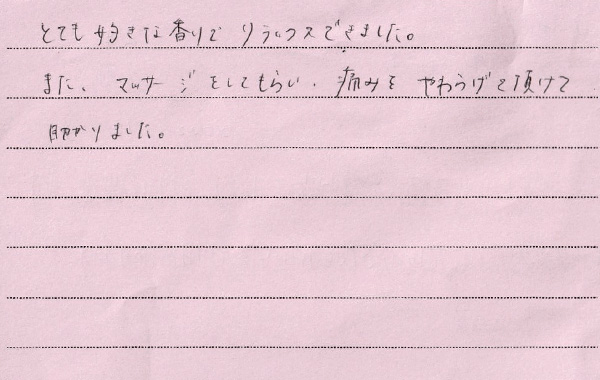 とても好きな香りで リラックスできました。
また、マッサージをしてもらい、痛みを やわらげて頂けて
助かりました。